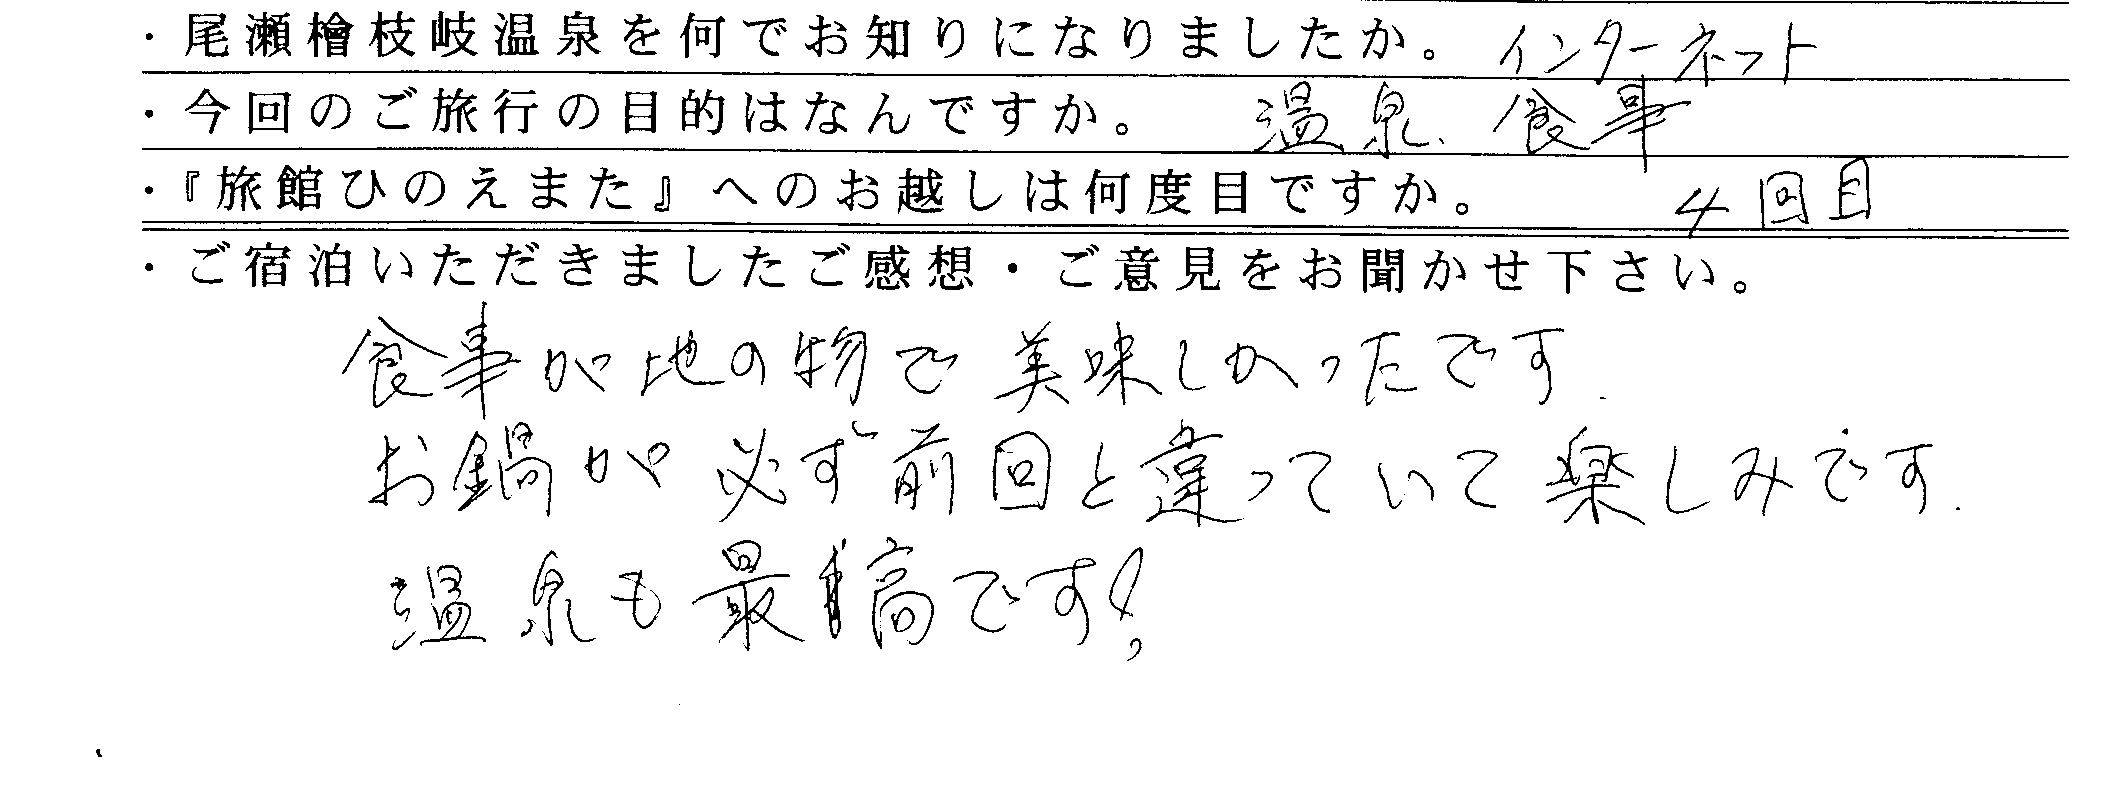 ・尾瀬檜枝岐温泉を何でお知りになりましたか。 インターネット
・今回のご旅行の目的はなんですか。 温泉、食事
・『旅館ひのえまた』へのお越しは何度目ですか。 4回目
・ご宿泊いただきましたご感想・ご意見をお聞かせ下さい。
食事が地の物で美味しかったです.
お鍋が必ず前回と違っていて楽しみです.
温泉も最高です!